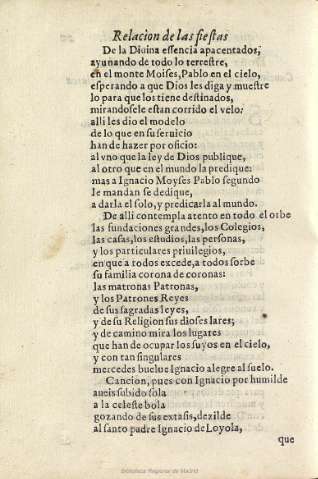 Relacion de las fiestas
De la Diuina essencia apacentados,
ayunando de todo lo terrestre,
en el monte Moises, Pablo en el cielo,
esperando a que Dios les diga y muestre
lo para que los tiene destinados,
mirandosele estan corrido el velo:
alli les dio el modelo
de lo que en su seruicio
han de hazer por oficio:
al vno que la ley de Dios publique,
al otro que en el mundo la predique:
mas a Ignacio Moyses Pablo segundo
le mandan se dedique,
a darla el solo, y predicarla al mundo.
De alli contempla atento en todo el orbe
las fundaciones grandes, los Colegios,
las casas, los estudios, las personas,
y los particulares priuilegios,
en que a todos excede, a todos sorbe
su familia corona de coronas:
las matronas Patronas,
y los Patrones Reyes
de sus sagradas leyes,
y de su Religion sus dioses lares;
y de camino mira los lugares
que han de ocupar los suyos en el cielo,
y con tan singulares
mercedes buelue Ignacio alegre al suelo.
Cancion, pues con Ignacio por humilde
aueis subido sola
a la celeste bola
gozando de sus extasis, dezilde
al santo padre Ignacio de Loyola,
que
Biblioteca Regional de Madrid